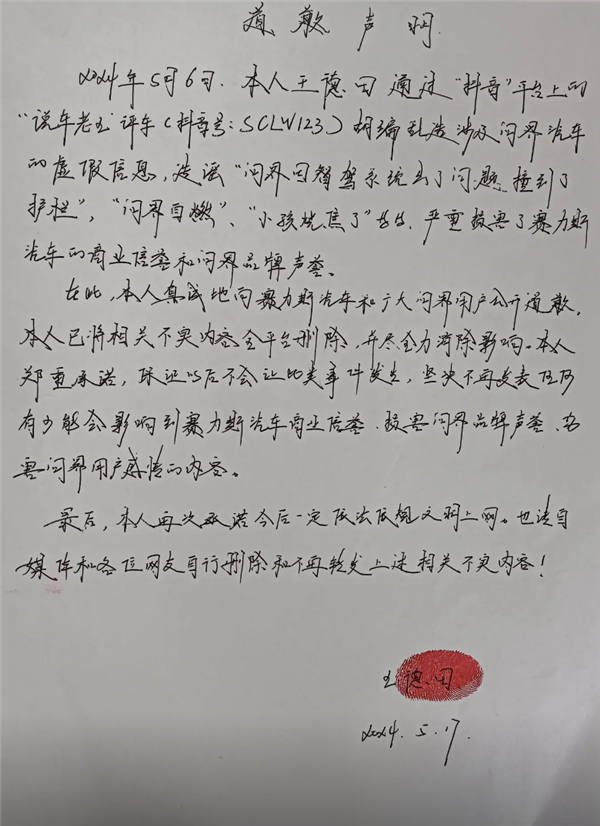 道歉声明
2024年5月6日,本人王德田通过“抖音”平台上的
“说车老王”评车(抖音号:SCLW123)胡编乱造涉及问界汽车
的虚假信息,造谣“问界因智驾系统出了问题撞到了
护栏”,“问界自燃”、“小孩烧焦了”等等,严重损害了赛力斯
汽车的商业信誉和问界品牌声誉。
在此,本人真诚地向赛力斯汽车和广大问界用户公开道歉。
本人已将相关不实内容全平台删除,并尽全力消除影响。本人
郑重承诺,保证以后不会让此类事件发生,坚决不再发表任何
有可能会影响到赛力斯汽车商业信誉、损害问界品牌声誉、伤
害问界用户感情的内容。
最后,本人再次承诺今后一定依法依规文明上网。也请自
媒体和各位网友自行删除和不再转发上述相关不实内容!
王德田
2024.5.17.